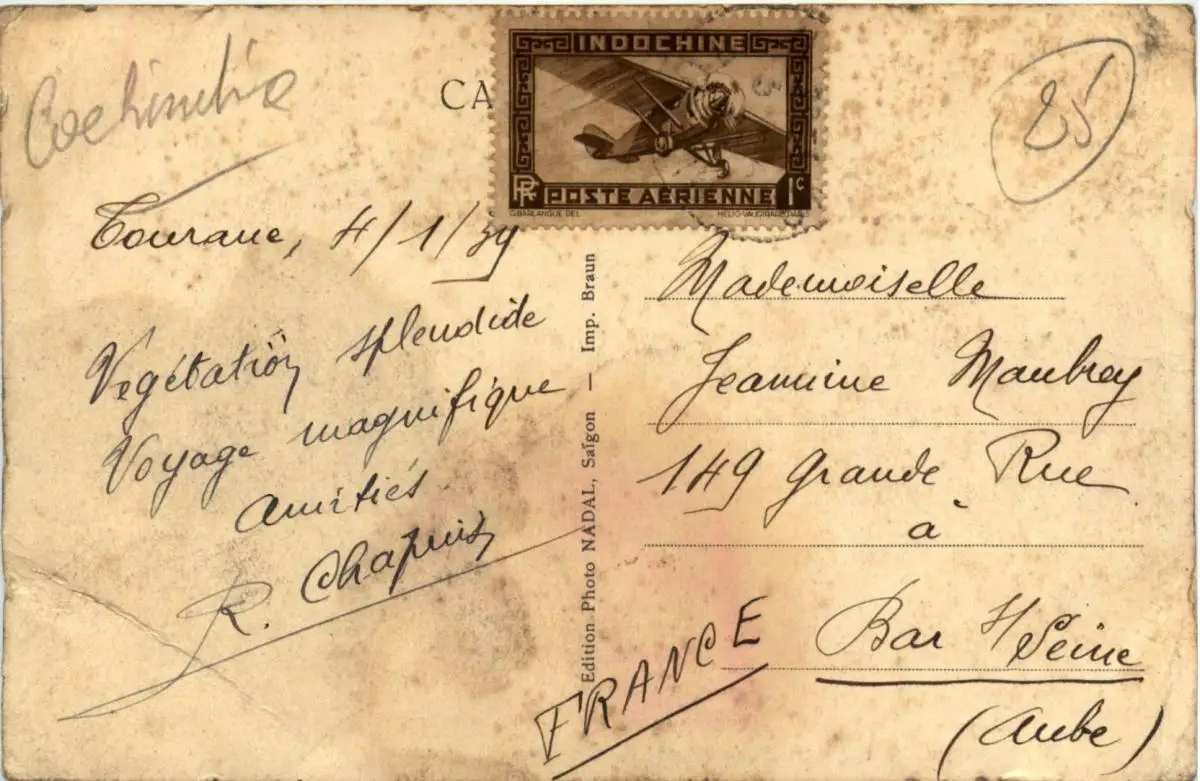 Cochinchine
CA
INDOCHINE
RF POSTE AÉRIENNE 1c
G.BARLANGUE DEL. HÉLIO-VAUGIRARD PARIS
25
Tourane, 4/1/39
Vegétation splendide
Voyage magnifique
Amitiés
R. Chapuis
Edition Photo NADAL, Saïgon — Imp. Braun
Mademoiselle
Jeannine Maubrey
149 Grande Rue
à
Bar s/ Seine
(Aube)
FRANCE